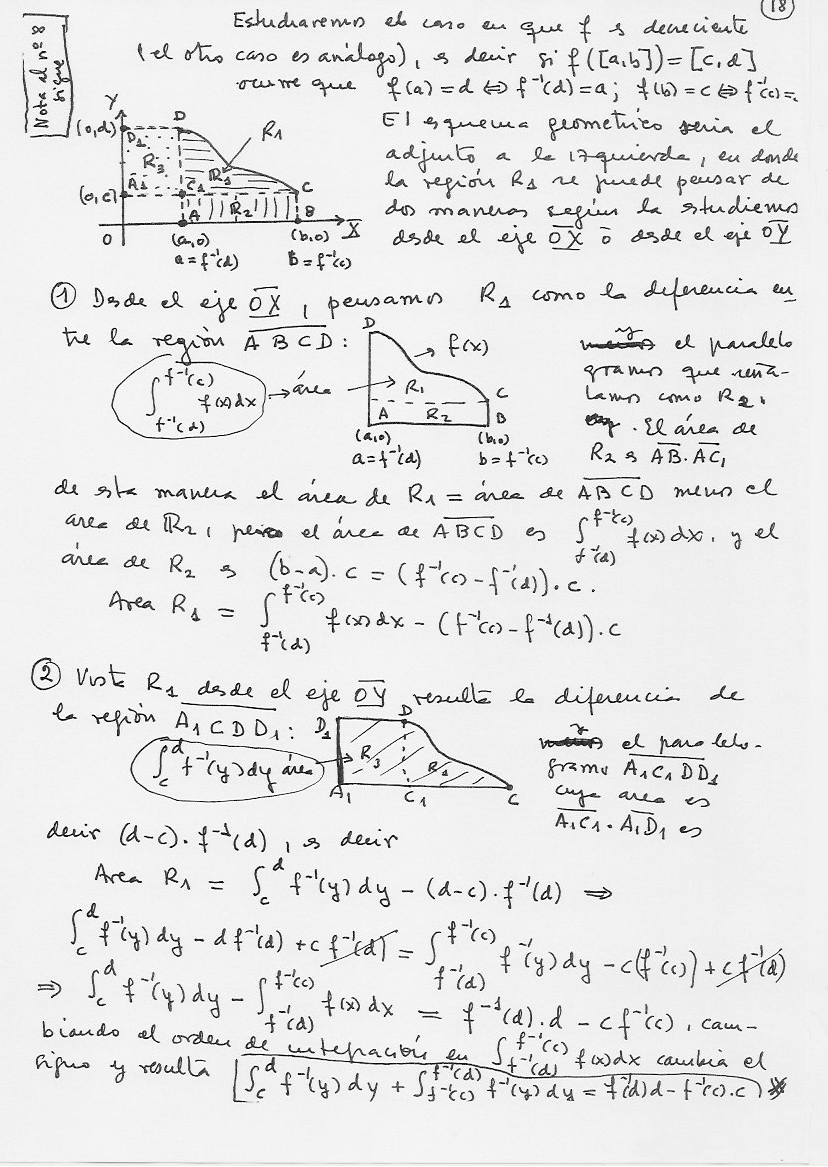 18
Nota al nº 8
sigue
Estudiaremos el caso en que f es decreciente
(el otro caso es análogo), es decir si f([a,b]) = [c,d]
ocurre que f(a) = d ⇔ f⁻¹(d) = a; f(b) = c ⇔ f⁻¹(c) =
El esquema geometrico seria el
adjunto a la izquierda, en donde
la región R1 se puede pensar de
dos maneras según la estudiemos
desde el eje OX ó desde el eje OY
Y
(0,d)
D1
D
R1
R3
R1
(0,c)
A1
C1
C
A
R2
B
O
(a,0)
(b,0)
X
a = f⁻¹(d)
B = f⁻¹(c)
① Desde el eje OX, pensamos R1 como la diferencia en
tre la región ABCD:
D
f(x)
y el paralelo
gramos que seña-
lamos como R2,
. El área de
R2 es AB·AC1
∫ f⁻¹(d) f⁻¹(c) f(x)dx → área
R1
C
A
R2
B
(a,0)
(b,0)
a = f⁻¹(d)
b = f⁻¹(c)
de esta manera el área de R1 = área de ABCD menos el
area de R2, pero el área de ABCD es ∫ f⁻¹(d) f⁻¹(c) f(x)dx, y el
área de R2 es (b-a).c = (f⁻¹(c) - f⁻¹(d)).c.
Area R1 = ∫ f⁻¹(d) f⁻¹(c) f(x)dx - (f⁻¹(c) - f⁻¹(d)).c
② Vista R1 desde el eje OY resulta la diferencia de
la región A1CDD1:
D1
D
y el paralelo-
gramo A1C1DD1
cuya area es
A1C1·A1D1 es
∫ c d f⁻¹(y)dy área
R3
R1
A1
C1
C
decir (d-c).f⁻¹(d), es decir
Area R1 = ∫ c d f⁻¹(y)dy - (d-c).f⁻¹(d) ⇒
∫ c d f⁻¹(y)dy - d f⁻¹(d) + c f⁻¹(d) = ∫ f⁻¹(d) f⁻¹(c) f⁻¹(y)dy - c(f⁻¹(c)) + c f⁻¹(d)
⇒ ∫ c d f⁻¹(y)dy - ∫ f⁻¹(d) f⁻¹(c) f(x)dx = f⁻¹(d).d - c f⁻¹(c), cam-
biando el orden de integración en ∫ f⁻¹(d) f⁻¹(c) f(x)dx cambia el
signo y resulta ∫ c d f⁻¹(y)dy + ∫ f⁻¹(c) f⁻¹(d) f⁻¹(y)dy = f⁻¹(d)d - f⁻¹(c).c